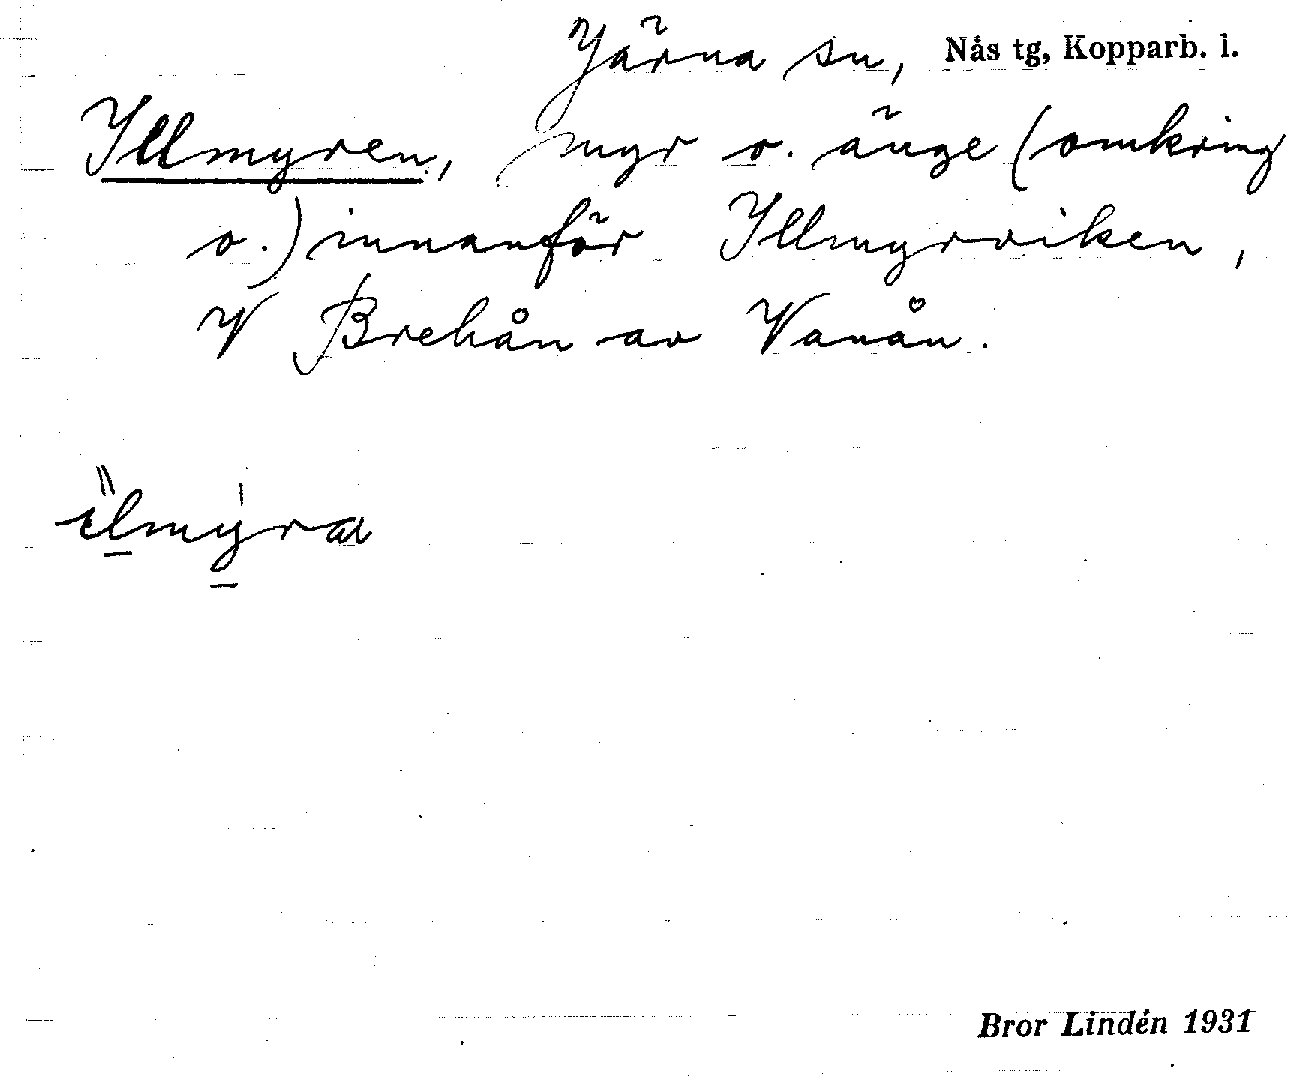 Järna sn, Nås tg, Kopparb. l.
Illmyren, myr o. änge (omkring
o.) innanför Illmyrviken,
V Brehån av Vanån.
ilmyra
Bror Lindén 1931